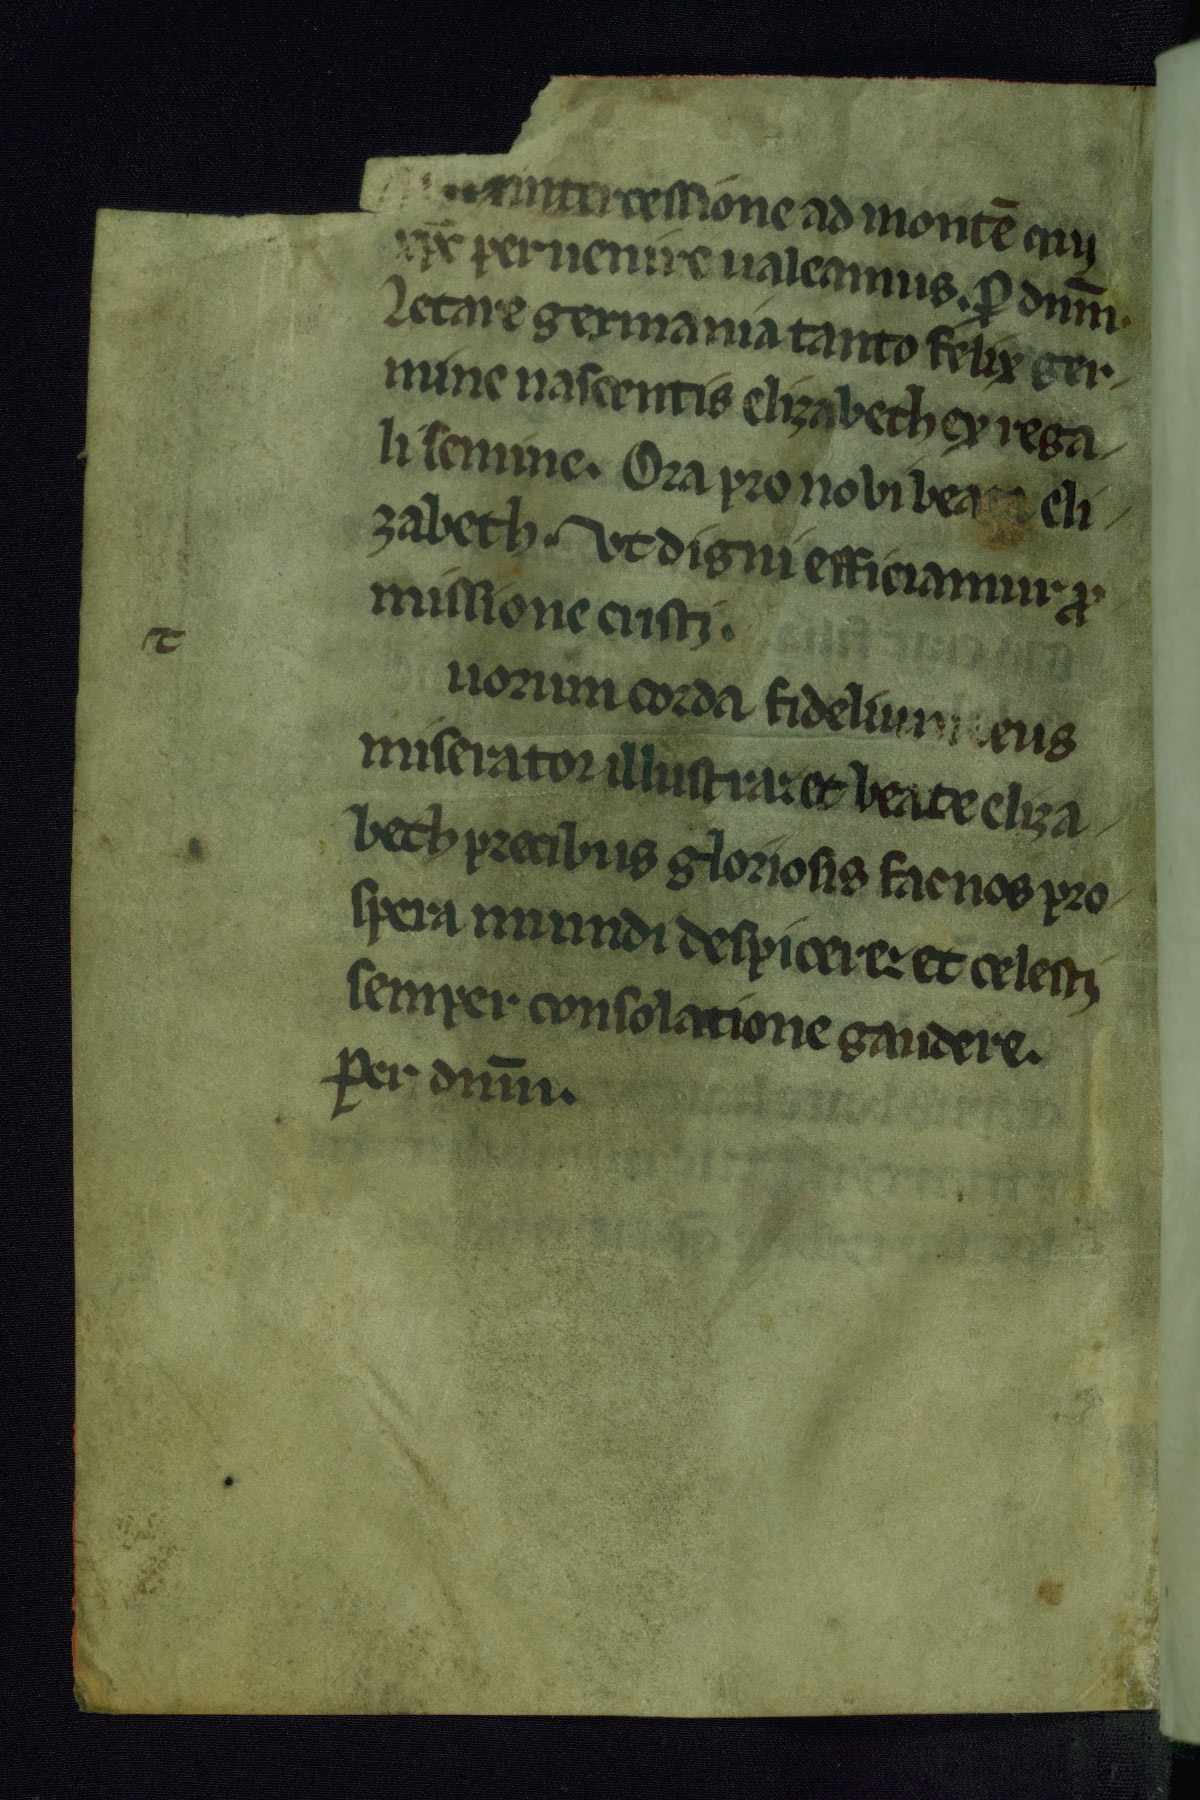 intercessione ad montē qui
xp̄c peruenire ualeamus. ꝑ dnm̄.
Letare germania tanto felix ger-
mine nascentis elizabeth ex rega-
li semine. Ora pro nobi beata eli-
zabeth. Vt digni efficiamur ꝓ-
missione cristi.
t
uorum corda fidelium deus
miserator illustra: et beate eliza-
beth precibus gloriosis fac nos pro-
spera mundi despicere: et celesti
semper consolatione gaudere.
Per dnm̄.